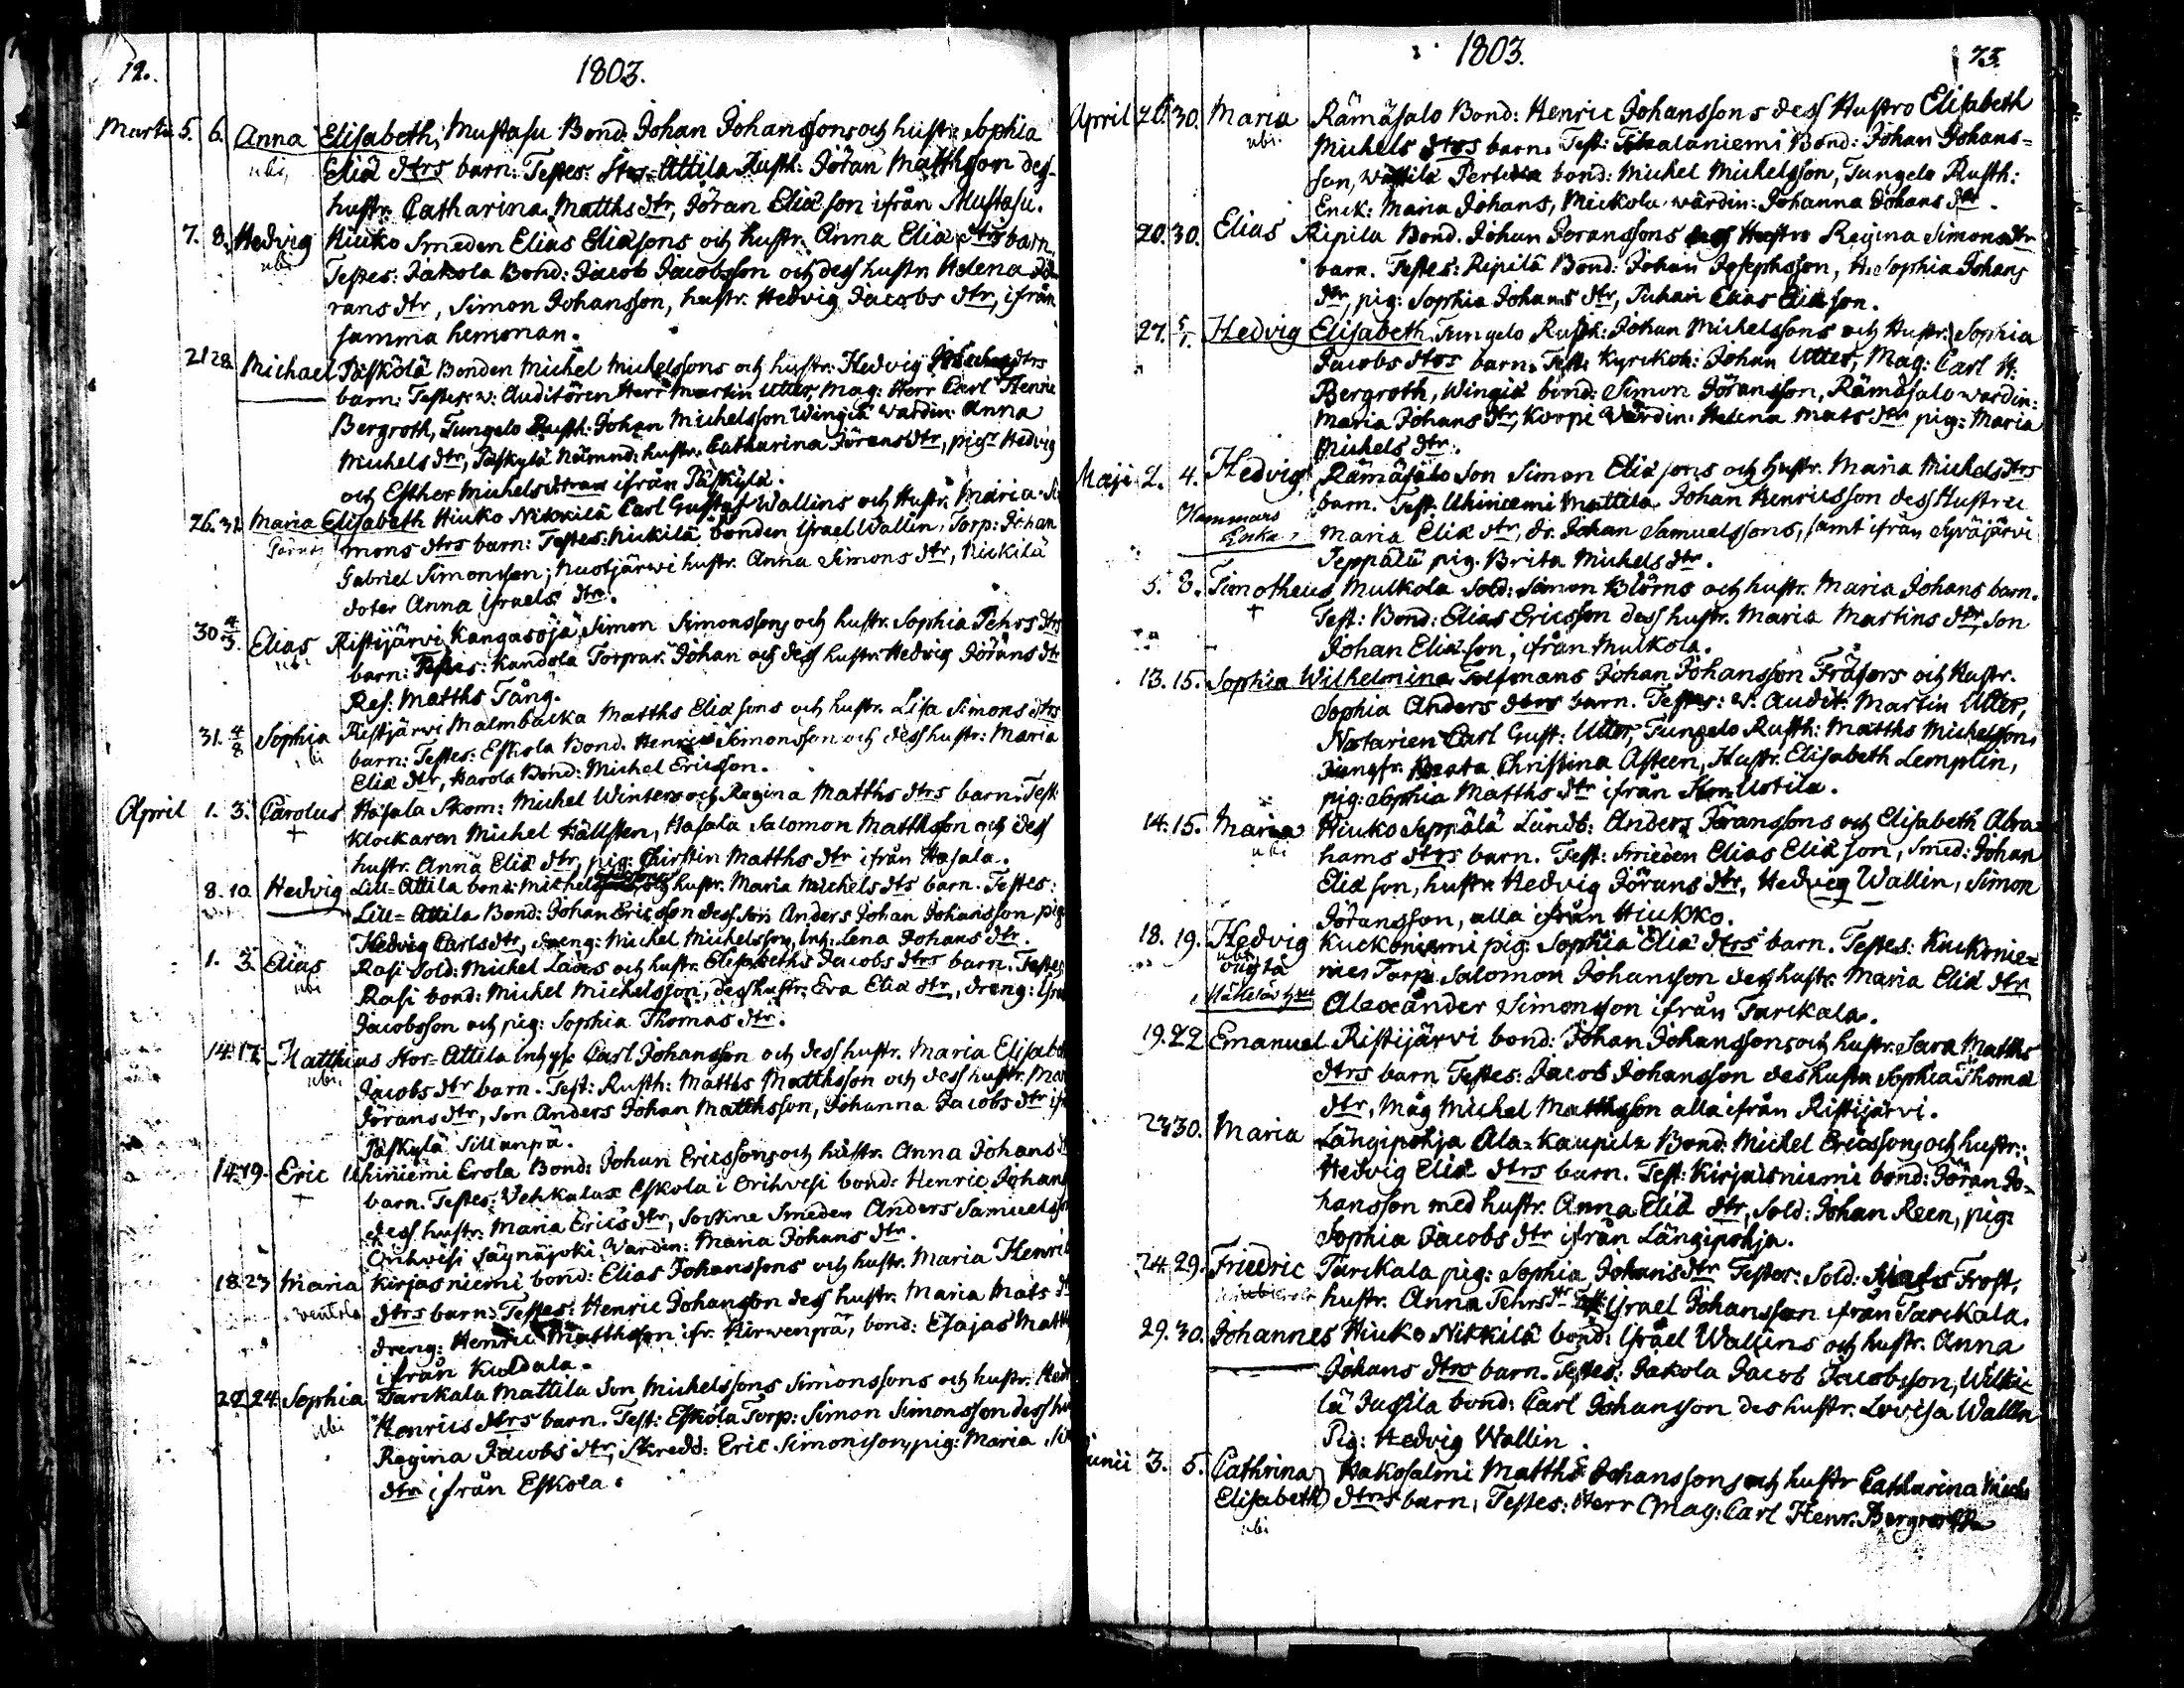 12.
1803.
Martii 5. 6. Anna Elisabeth, Mustasu Bond: Johan Johanssons och hustr: Sophia
ubi Eliæ dtrs barn: Testes: Stor-Attila Rusth: Jöran Matthsson dess
hustr: Catharina Matths dtr, Jöran Eliæson ifrån Mustasu.
7. 8. Hedvig Hiuko Smeden Elias Eliæsons och hustr. Anna Eliæ dtrs barn.
ubi Testes: Jakola Bond: Jacob Jacobsson och dess hustr. Helena Jö
rans dtr, Simon Johansson, hustr. Hedvig Jacobs dtr, ifrån
samma hemman.
21 28 Michael Päskölä Bonden Michel Michelssons och hustr: Hedvig dtrs
barn: Testes: v: Auditören Herr Martin Utter, Mag: Herr Carl Henric
Bergroth, Tungelo Rusth: Johan Michelsson Wingiä Värdin: Anna
Michels dtr, Päskylä Nämnd: hustr. Catharina Jörans dtr, pigr Hedvig
och Esther Michels dtrar ifrån Päskylä.
26. 31. Maria Elisabeth Hiuko Nikkilä Carl Gustaf Wallins och Hustr. Maria Si
mons dtrs barn: Testes: Nickilä bonden Israel Wallin, Torp: Johan
Gabriel Simonsson, Nuotjärwi hustr. Anna Simons dtr, Nickilä
doter Anna Israels dtr.
30 4/3 Elias Ristijärvi Kangasoja, Simon Simonssons och hustr. Sophia Pehrs dtrs
ubi barn: Testes: Kandola Torpar. Johan och dess hustr. Hedvig Jörans dtr
Res: Matths Tång.
31. 4/8 Sophia Ristjärvi Malmbacka Matths Eliæsons och hustr. Lisa Simons dtrs
ubi barn: Testes: Eskola Bond. Henric Simonsson och dess hustr: Maria
Eliæ dtr, Harola Bond: Michel Ericsson.
April 1. 3. Carolus Hasala Skom: Michel Winters och Regina Matths dtrs barn. Test:
+ Klockaren Michel Hällsten, Hasala Salomon Matthsson och dess
hustr. Anna Eliæ dtr, pig: Chirstin Matths dtr ifrån Hasala.
8. 10. Hedvig Lill-Attila bond: Michels och hustr. Maria Michels dts barn. Testes:
Lill-Attila Bond: Johan Ericsson dess son Anders Johan Johansson, pig:
Hedvig Carls dtr, Dreng: Michel Michelsson, Inh: Lena Johans dtr.
1. 3. Elias Rasi Sold: Michel Lades och hustr. Elisabeths Jacobs dtrs barn. Testes
ubi Rasi bond: Michel Michelsson, dess hustr: Eva Eliæ dtr, dreng: Isra
Jacobsson och pig: Sophia Thomas dtr.
14. 17. Matthias Stor-Attila Inhys: Carl Johansson och dess hustr. Maria Elisabet
ubi Jacobs dtr barn. Test: Rusth: Matths Matthsson och dess hustr. Mar
Jörans dtr, Son Anders Johan Matthsson, Johanna Jacobs dtr ifr
Päskylä Sillanpä.
14. 19. Eric Uhiniemi Erola Bond: Johan Ericssons och hustr. Anna Johans d
+ barn. Testes: Vehkalax Eskola i Orihvesi bond: Henric Johans
dess hustr. Maria Erics dtr, Sockne Smeden Anders Samuelsson
Orihwesi Säynäjoki Värdin: Maria Johans dtr.
18. 23 Maria Kirjasniemi bond: Elias Johanssons och hustr. Maria Henric
dtrs barn. Testes: Henric Johansson dess hustr. Maria Mats dtr
dreng: Henric Matthsson ifr. Hirwenpää, bond: Esajas Matth
ifrån Kuldala.
22 24. Sophia Tarckala Mattila Son, Michelssons Simonssons och hustr. Hed
ubi Henrics dtrs barn. Test: Eskola Torp: Simon Simonsson dess hu
Regina Jacobs dtr, Skredd: Eric Simonsson, pig: Maria Si
dtr ifrån Eskola.
1803.
73.
April 26. 30. Maria Rämäsalo Bond: Henric Johanssons dess Hustro Elisabeth
ubi Michels dtrs barn. Test: Bond: Johan Johans-
son, Wättilä Perttula bond: Michel Michelsson, Tungelo Rusth:
Enck: Maria Johans, Muckola wärdin: Johanna Johans dtr.
20. 30. Elias Ripila Bond. Johan Joranssons Hustro Regina Simons dtr
barn. Testes: Ripilä Bond: Johan Josephsson, H. Sophia Johans
dtr, pig: Sophia Johans dtr, Juhani Elias Eliæson.
27. 5/1 Hedvig Elisabeth Tungelo Rusth: Johan Michelssons och Hustr: Sophia
Jacobs dtrs barn. Test: Kyrckoh: Johan Utter, Mag: Carl H:
Bergroth, Wingiä bond: Simon Jöransson, Rämäsalo wardin:
Maria Johans dtr, Korpi Värdin: Helena Mats dtr pig: Maria
Michels dtr.
Maji 2. 4. Hedvig Rämäsalo Son Simon Eliæsons och hustr. Maria Michels dtrs
barn. Test. Uhiniemi Mattila Johan Henricsson dess Hustru
Hammars Maria Eliæ dtr, dr. Johan Samuelssons, samt ifrån Syväjärvi
Enka, Seppälä pig. Brita Michels dtr.
5. 8. Timotheus Mulkola Sold: Simon Blöms och hustr. Maria Johans barn.
+ Test: Bond: Elias Ericsson dess hustr. Maria Martins dtr, Son
Johan Eliæson, ifrån Mulkola.
13. 15. Sophia Wilhelmina Tolfmans Johan Johansson Fräsers och Hustr.
Sophia Anders dtrs barn. Testes: V. Audit: Martin Utter,
Notarien Carl Gust: Utter, Tungelo Rusth: Matths Michelssons
Jungfr. Beata Christina Asteen, Hustr. Elisabeth Lemplin,
pig: Sophia Matths dtr ifrån Uotila.
14. 15. Maria Hiuko Seppälä Lundb: Anders Jöranssons och Elisabeth Abra-
ubi hams dtrs barn. Test: Smeden Elias Eliæson, Smed: Johan
Eliæson, hustr. Hedvig Jörans dtr, Hedvig Wallin, Simon
Jöransson, alla ifrån Hiukko.
18. 19. Hedvig Kuckoniemi pig: Sophia Eliæ dtrs barn. Testes: Kuckonie-
ubi oägta mes Torp: Salomon Johansson dess hustr. Maria Eliæ dtr
Alexander Simonsson ifrån Tarckala.
19. 22 Emanuel Ristijärvi bond: Johan Johanssons och hustr. Sara Matths
dtrs barn Testes: Jacob Johansson des hustr. Sophia Thomæ
dtr, Måg Michel Matthsson alla ifrån Ristijärvi.
23 30. Maria Längipohja Ala-Kaupila Bond: Michel Ericssons och hustr:
Hedvig Eliæ dtrs barn. Test: Kirjaisniemi bond: Jöran Jo-
hansson med hustr. Anna Eliæ dtr, Sold: Johan Reen, pig:
Sophia Jacobs dtr ifrån Längipohja.
24. 29. Friedric Tarckala pig: Sophia Johans dtr Testes: Sold: Frost,
hustr. Anna Pehrs dtr Israel Johansson ifrån Tarckala.
29. 30. Johannes Hiuko Nikkilä bond: Israel Wallins och hustr. Anna
Johans dtrs barn. Testes: Jakola Jacob Jacobsson, Wilki-
lä Jussila bond: Carl Johansson des hustr. Lovisa Wallin
Pig: Hedvig Wallin.
Junii 3. 5. Cathrina Hakosalmi Matths Johanssons och hustr Catharina Michs
Elisabeth dtrs barn, Testes: Herr Mag: Carl Henr. Bergroth
ubi